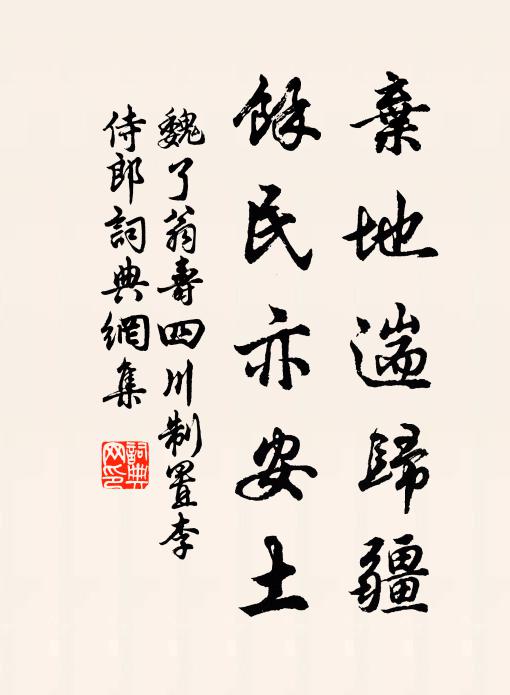 棄地遄歸疆
餘民亦安土
魏了翁壽四川制置李
侍郎詞典網集
詞典
网印